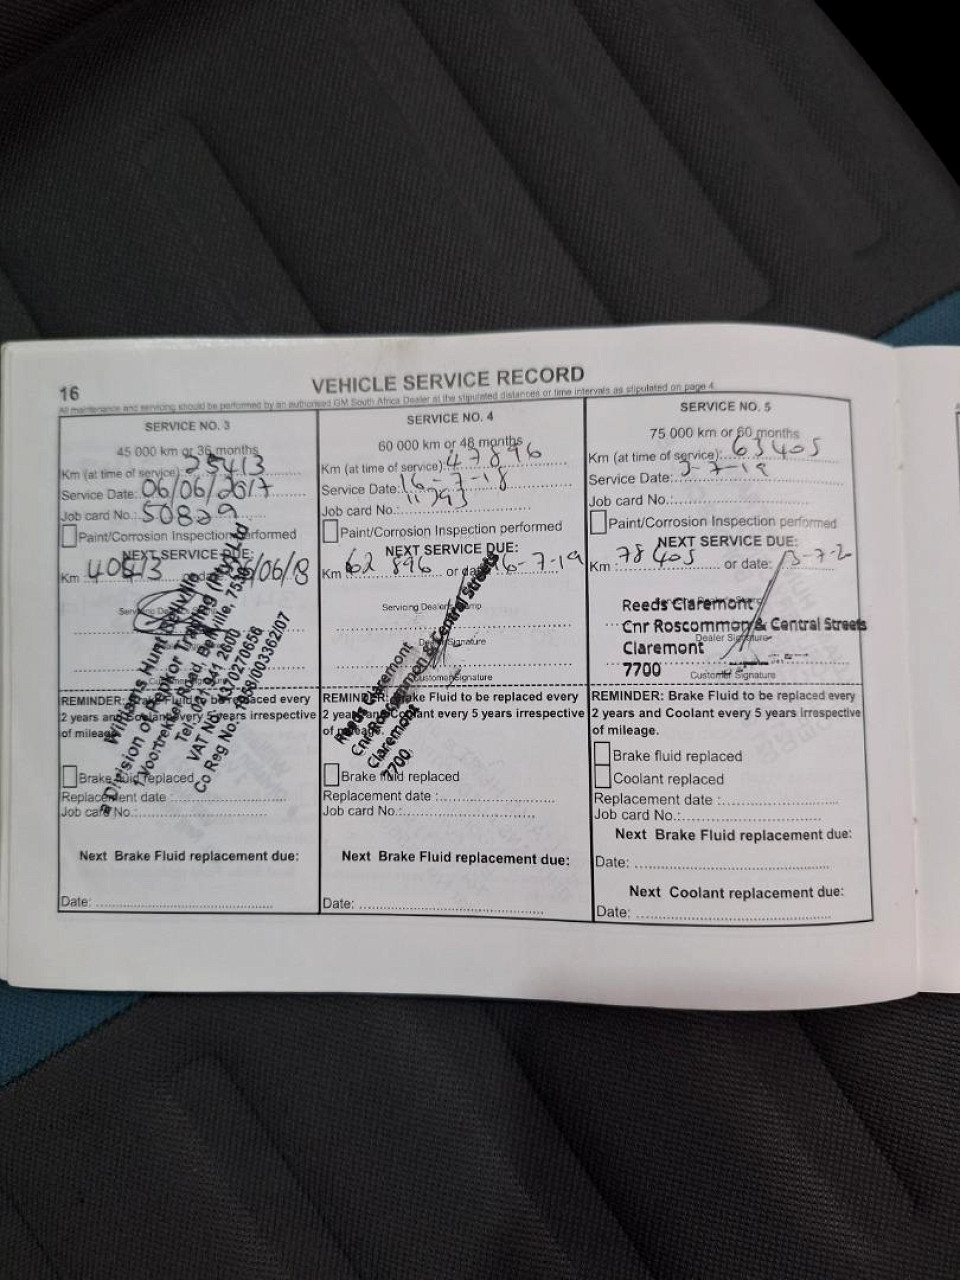 16
VEHICLE SERVICE RECORD
All maintenance and servicing should be performed by an authorised GM South Africa Dealer at the stipulated distances or time intervals as stipulated on page 4
SERVICE NO. 3
45 000 km or 36 months
Km (at time of service): 25413
Service Date: 06/06/2017
Job card No.: 50829
Paint/Corrosion Inspection performed
NEXT SERVICE DUE:
Km 40413 /06/18
Williams Hunt Bellville
a Division of Trading (Pty) Ltd
1 Voortrekker Road, Bellville, 7530
Tel: 021 941 2600
VAT No: 4370270656
Co Reg No: 1958/003362/07
REMINDER: Brake Fluid to be replaced every
2 years and Coolant every 5 years irrespective
of mileage.
Brake fluid replaced
Replacement date :
Job card No.:
Next Brake Fluid replacement due:
Date:
SERVICE NO. 4
60 000 km or 48 months
Km (at time of service): 47896
Service Date: 16-7-18
Job card No.: 11793
Paint/Corrosion Inspection performed
NEXT SERVICE DUE:
Km 62 896 or date: 16-7-19
Servicing Dealer Stamp
Dealer Signature
Customer Signature
Reeds Claremont
Cnr Roscommon & Central Streets
Claremont
7700
REMINDER: Brake Fluid to be replaced every
2 years and Coolant every 5 years irrespective
of mileage.
Brake fluid replaced
Replacement date :
Job card No.:
Next Brake Fluid replacement due:
Date:
SERVICE NO. 5
75 000 km or 60 months
Km (at time of service): 63405
Service Date: 3-7-19
Job card No.:
Paint/Corrosion Inspection performed
NEXT SERVICE DUE:
Km 78405 or date: 3-7-2
Reeds Claremont
Cnr Roscommon & Central Streets
Dealer Signature
Claremont
7700
Customer Signature
REMINDER: Brake Fluid to be replaced every
2 years and Coolant every 5 years irrespective
of mileage.
Brake fluid replaced
Coolant replaced
Replacement date :
Job card No.:
Next Brake Fluid replacement due:
Date:
Next Coolant replacement due:
Date: